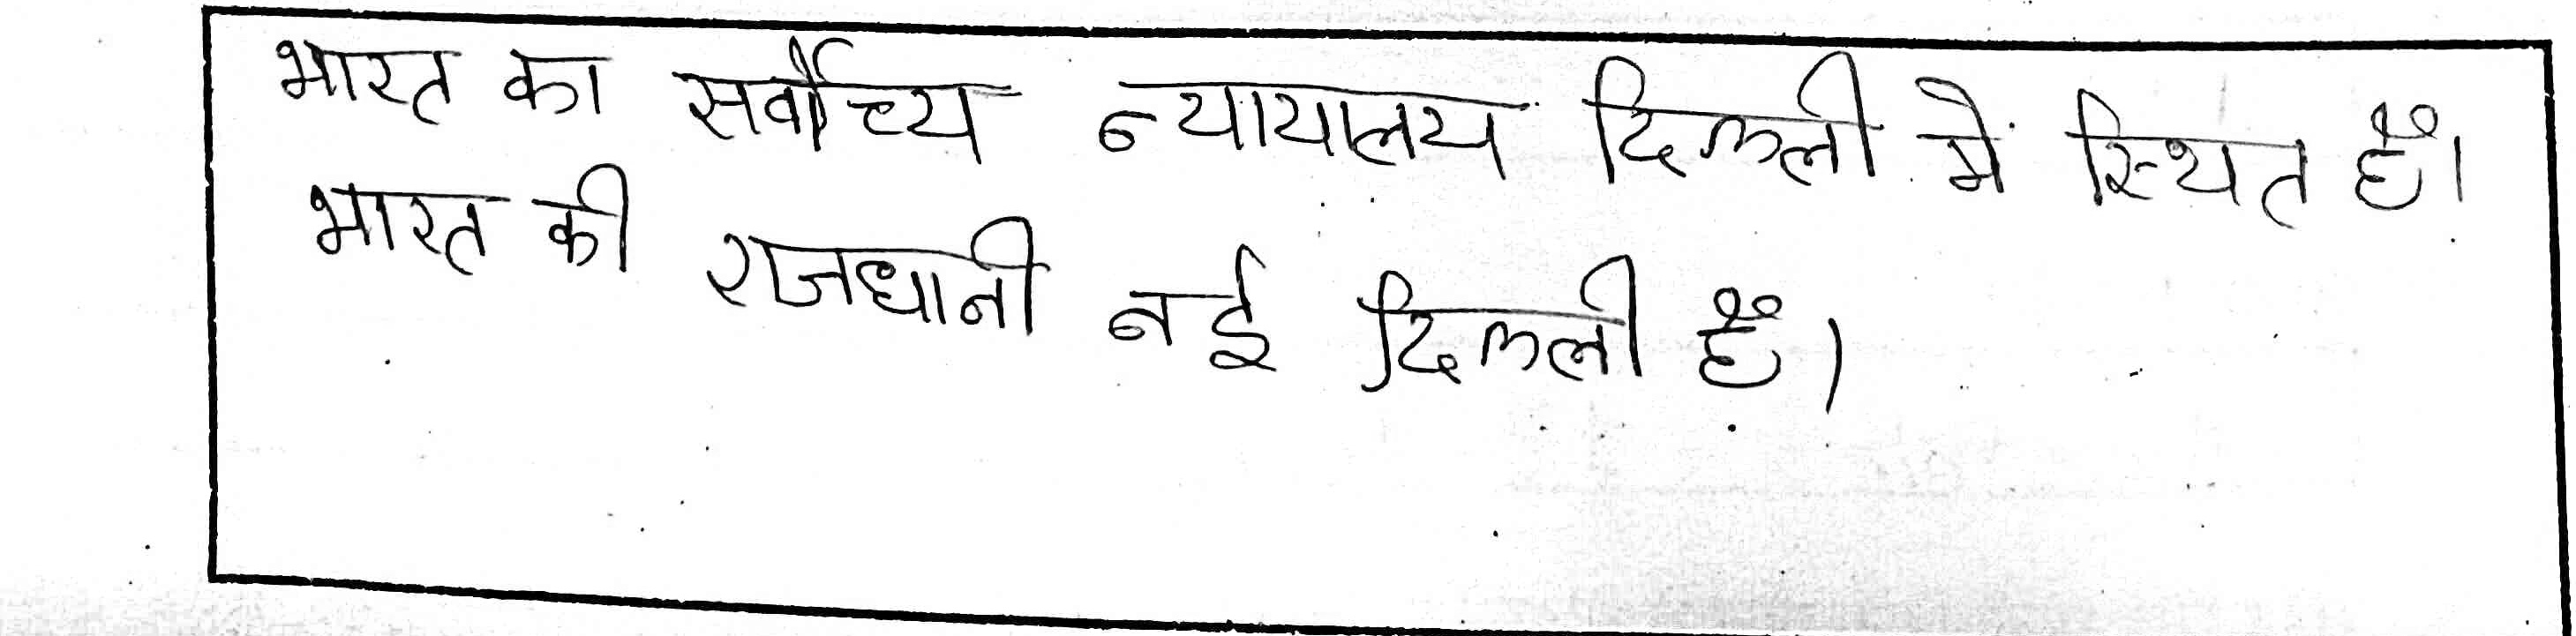 भारत का सर्वोच्य न्यायालय दिल्ली में स्थित हैं।
भारत की राजधानी नई दिल्ली हैं।